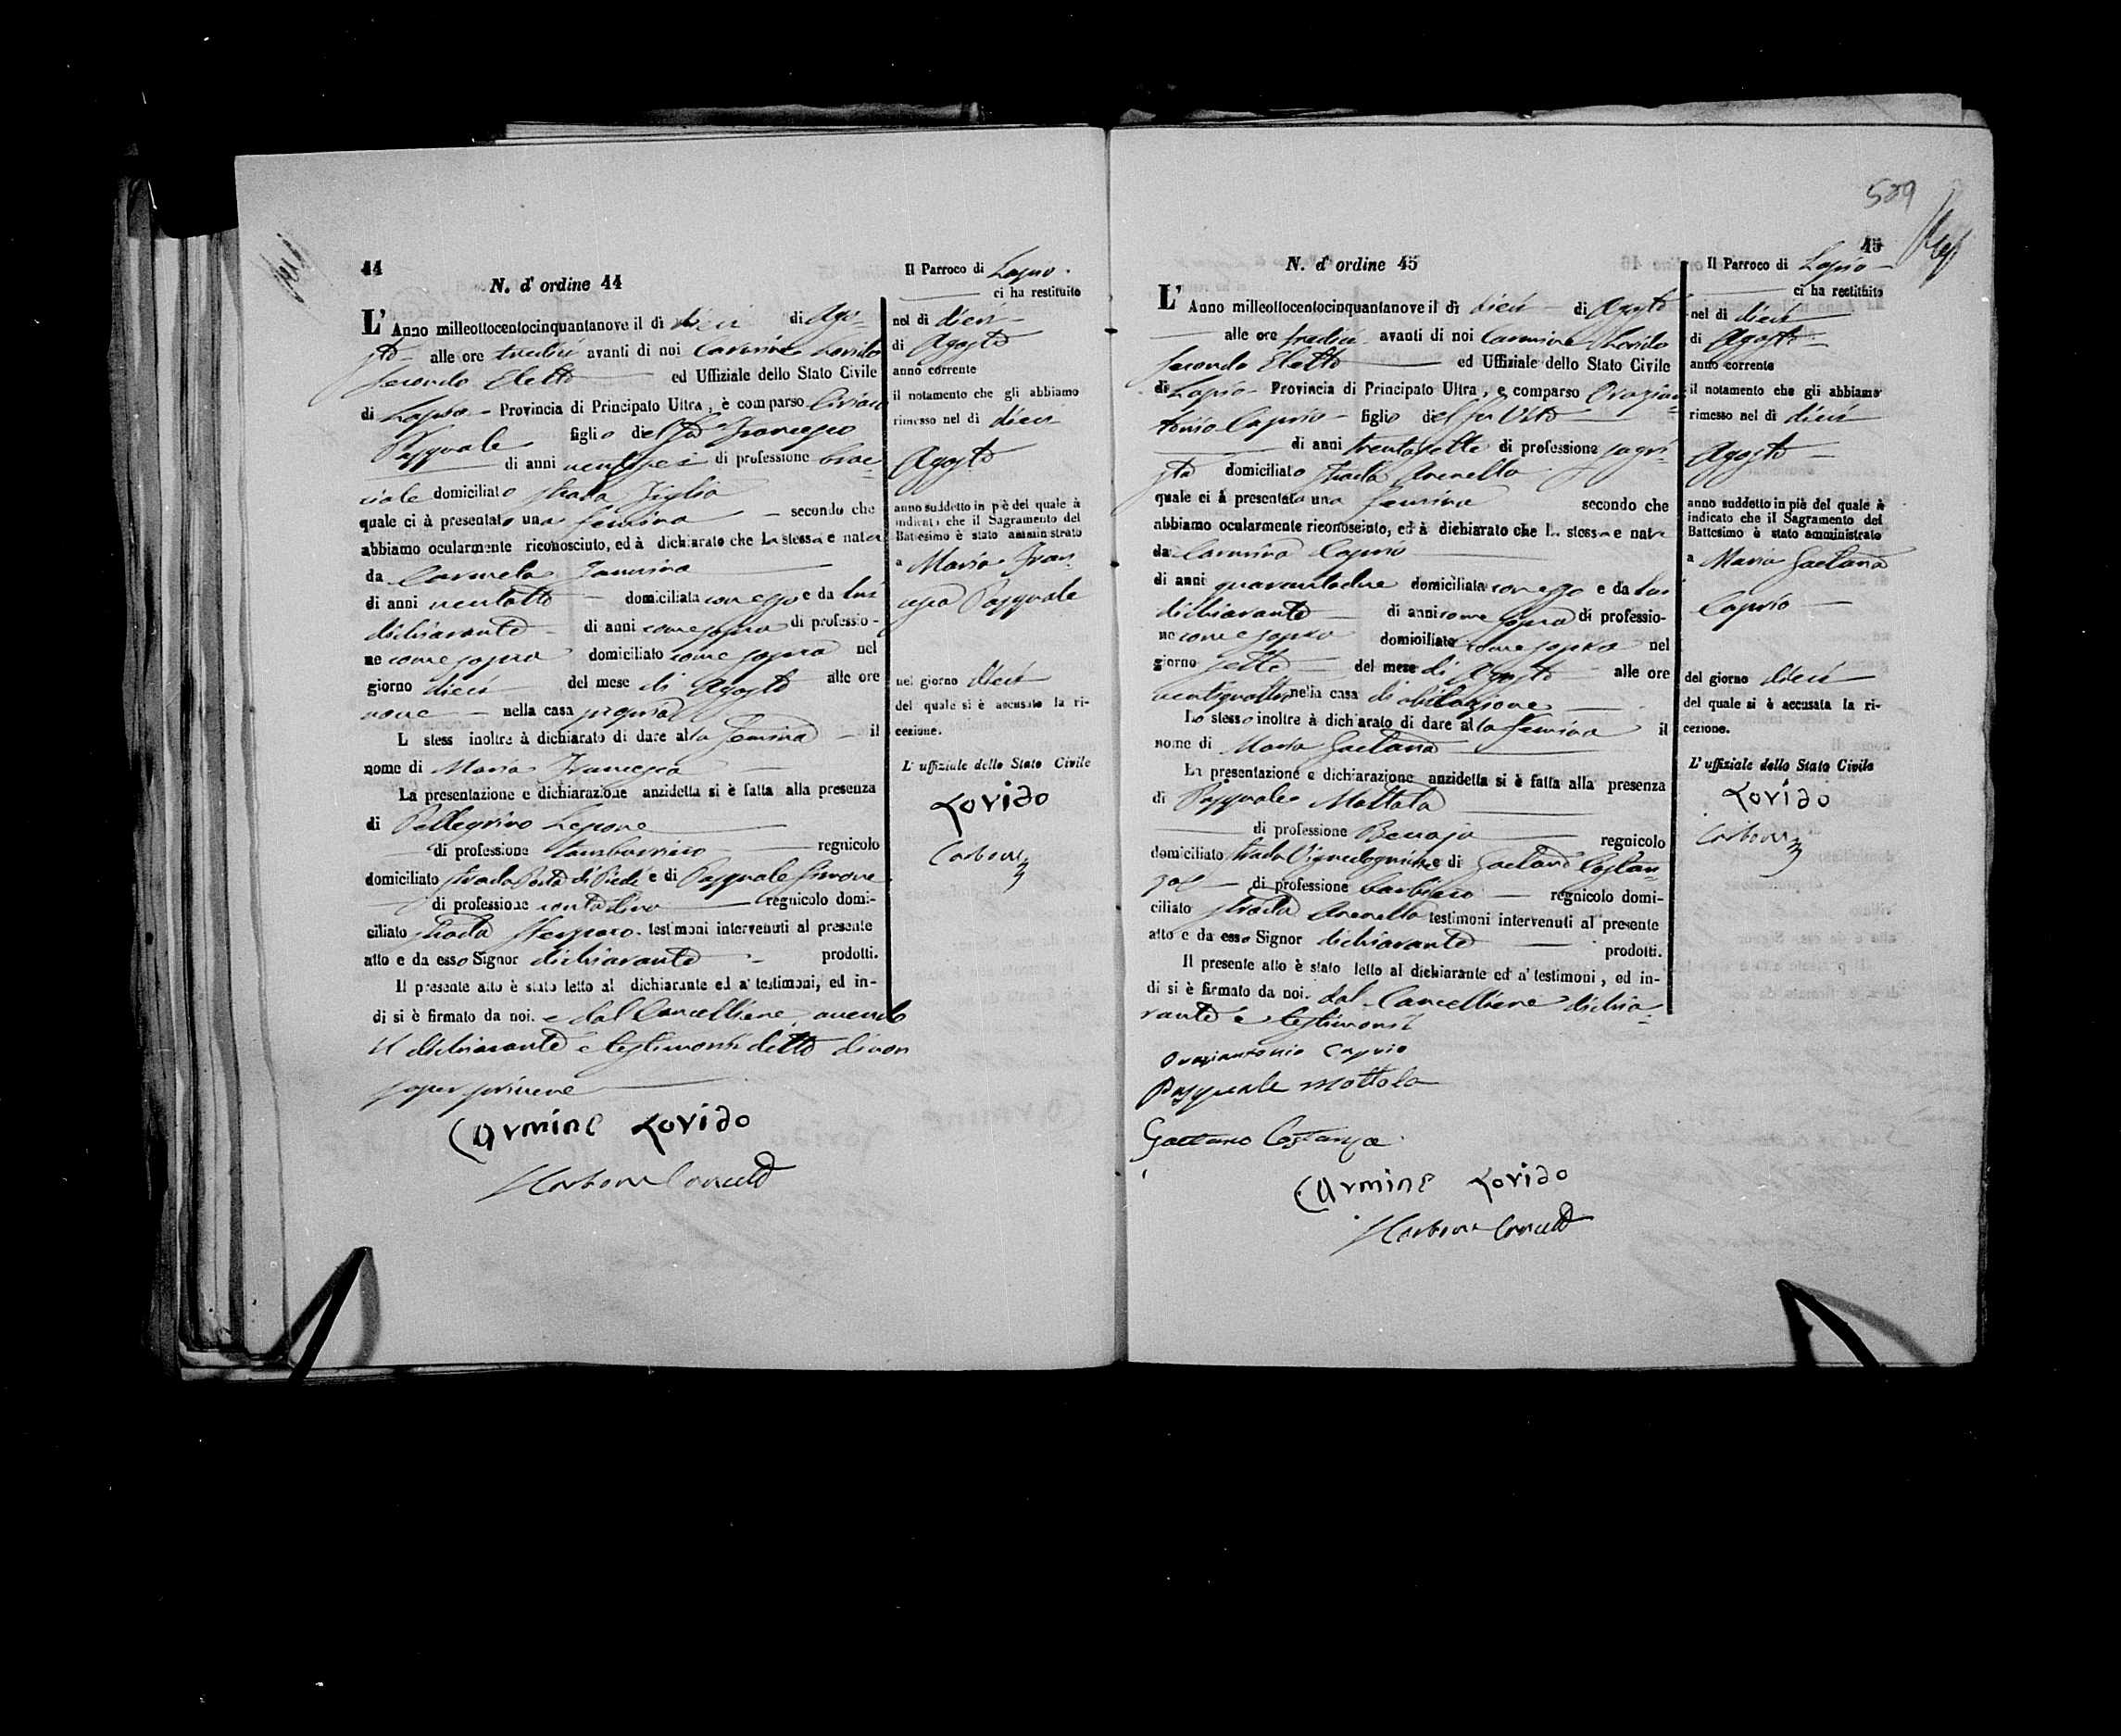 44
N. d' ordine 44
L' Anno milleottocentocinquantanove il di dieci di Ago-
sto alle ore tredici avanti di noi Carmine Lovido
Secondo Eletto ed Uffiziale dello Stato Civile
di Lapio Provincia di Principato Ultra, è comparso
Pasquale figlio del fu Francesco
di anni ventisei di professione brac-
ciale domiciliato strada Figlio
quale ci à presentato una femina secondo che
abbiamo ocularmente riconosciuto, ed à dichiarato che La stessa e nata
da Carmela Iannino
di anni ventotto domiciliata con esso e da lui
dichiarante di anni come sopra di professio-
ne come sopra domiciliato come sopra nel
giorno dieci del mese di Agosto alle ore
nove nella casa propria
L stess inoltre à dichiarato di dare alla femina il
nome di Maria Francesca
La presentazione e dichiarazione anzidetta si è fatta alla presenza
di Pellegrino Lepore
di professione tamburrino regnicolo
domiciliato strada Porta di Piedi e di Pasquale Simone
di professione contadino regnicolo domi-
ciliato strada testimoni intervenuti al presente
atto e da esso Signor dichiarante prodotti.
Il presente atto è stato letto al dichiarante ed a' testimoni, ed in-
di si è firmato da noi. e dal Cancelliere, avendo
il dichiarante e testimonii detto di non
saper scrivere
Carmine Lovido
Carbone
Il Parroco di Lapio
ci ha restituito
nel di dieci
di Agosto
anno corrente
il notamento che gli abbiamo
rimesso nel di dieci
Agosto
anno suddetto in piè del quale à
indicato che il Sagramento del
Battesimo è stato amministrato
a Maria Fran-
cesca Pasquale
nel giorno dieci
del quale si è accusato la ri-
cezione.
L' uffiziale dello Stato Civile
Lovido
Carbone
589
45
N. d' ordine 45
L' Anno milleottocentocinquantanove il di dieci di Agosto
alle ore tredici avanti di noi Carmine Lovido
Secondo Eletto ed Uffiziale dello Stato Civile
di Lapio Provincia di Principato Ultra, e comparso Orazian-
tonio Caprio figlio del fu Vito
di anni trentasette di professione sagri-
sta domiciliato strada Arenella
quale ci à presentata una femina secondo che
abbiamo ocularmente riconosciuto, ed à dichiarato che L. stessa e nata
da Carmina Caprio
di anni quarantadue domiciliata con esso e da lui
dichiarante di anni come sopra di professio-
ne come sopra domiciliato come sopra nel
giorno sette del mese di Agosto alle ore
ventiquattro nella casa di abitazione
Lo stesso inoltre à dichiarato di dare alla femina il
nome di Maria Gaetana
La presentazione e dichiarazione anzidetta si è fatta alla presenza
di Pasquale Mottola
di professione regnicolo
domiciliato strada e di Gaetano Costan-
za di professione barbiero regnicolo domi-
ciliato strada Arenella testimoni intervenuti al presente
atto e da esso Signor dichiarante prodotti.
Il presente atto è stato letto al dichiarante ed a' testimoni, ed in-
di si è firmato da noi. dal Cancelliere dichia-
rante e testimonii
Oraziantonio Caprio
Pasquale Mottola
Gaetano Costanza
Carmine Lovido
Carbone
Il Parroco di Lapio
ci ha restituito
nel di dieci
di Agosto
anno corrente
il notamento che gli abbiamo
rimesso nel di dieci
Agosto
anno suddetto in piè del quale à
indicato che il Sagramento del
Battesimo è stato amministrato
a Maria Gaetana
Caprio
del giorno dieci
del quale si è accusata la ri-
cezione.
L' uffiziale dello Stato Civile
Lovido
Carbone